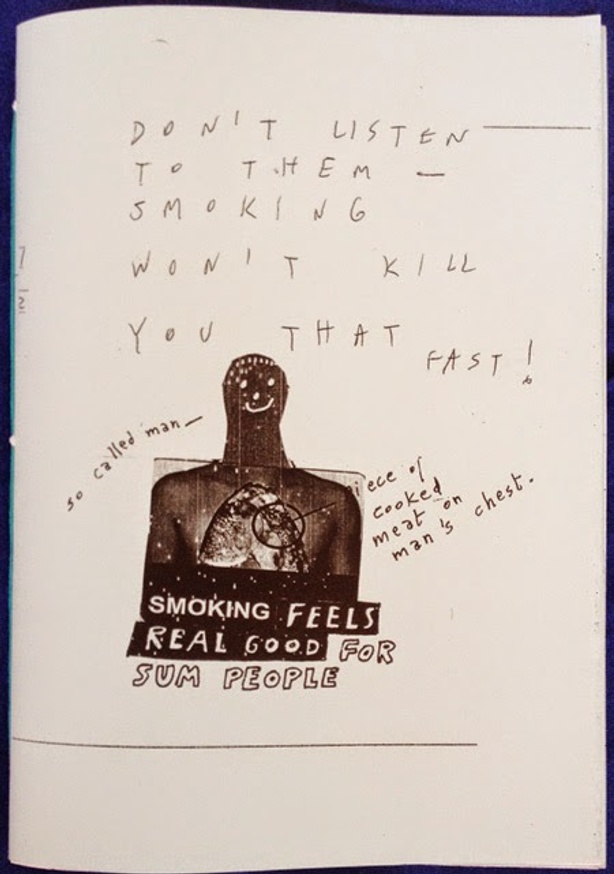 DON'T LISTEN
TO THEM —
SMOKING
WON'T KILL
YOU THAT
FAST!
so called man —
ece of
cooked
meat on
man's chest.
SMOKING FEELS
REAL GOOD FOR
SUM PEOPLE